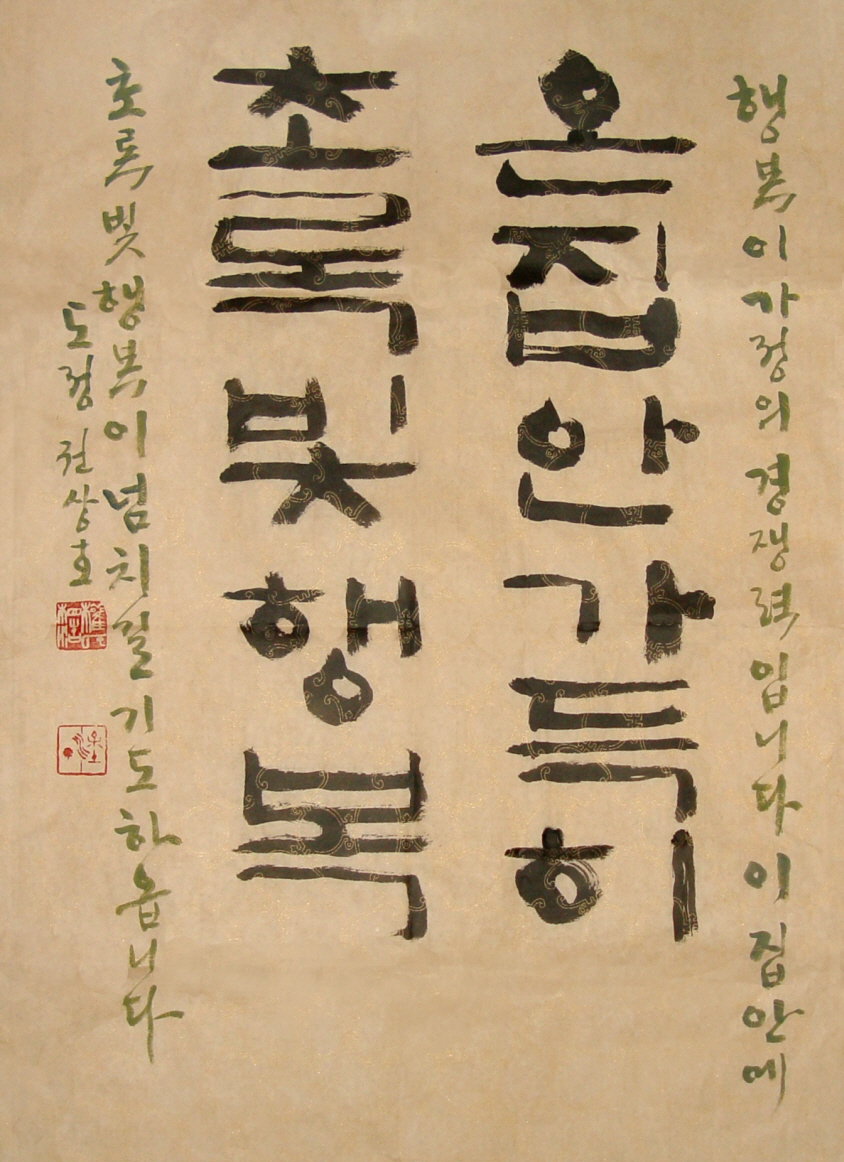 행복이 가정의 경쟁력입니다 이 집안에
온집안 가득히
초록빛 행복
초록빛 행복이 넘치길 기도하옵니다
도정 권상호